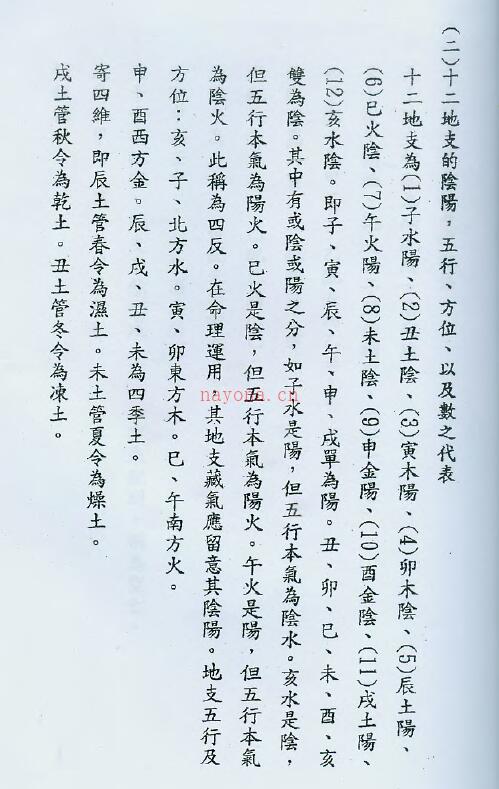 (二)十二地支的陰陽，五行、方位、以及數之代表
十二地支為(1)子水陽、(2)丑土陰、(3)寅木陽、(4)卯木陰、(5)辰土陽、
(6)巳火陰、(7)午火陽、(8)未土陰、(9)申金陽、(10)酉金陰、(11)戌土陽、
(12)亥水陰。即子、寅、辰、午、申、戌單為陽。丑、卯、巳、未、酉、亥
雙為陰。其中有或陰或陽之分，如子水是陽，但五行本氣為陰水。亥水是陰，
但五行本氣為陽火。巳火是陰，但五行本氣為陽火。午火是陽，但五行本氣
為陰火。此稱為四反。在命理運用，其地支藏氣應留意其陰陽。地支五行及
方位：亥、子、北方水。寅、卯東方木。巳、午南方火。
申、酉西方金。辰、戌、丑、未為四季土。
寄四維，即辰土管春令為濕土。未土管夏令為燥土。
戌土管秋令為乾土。丑土管冬令為凍土。
nayona.cn